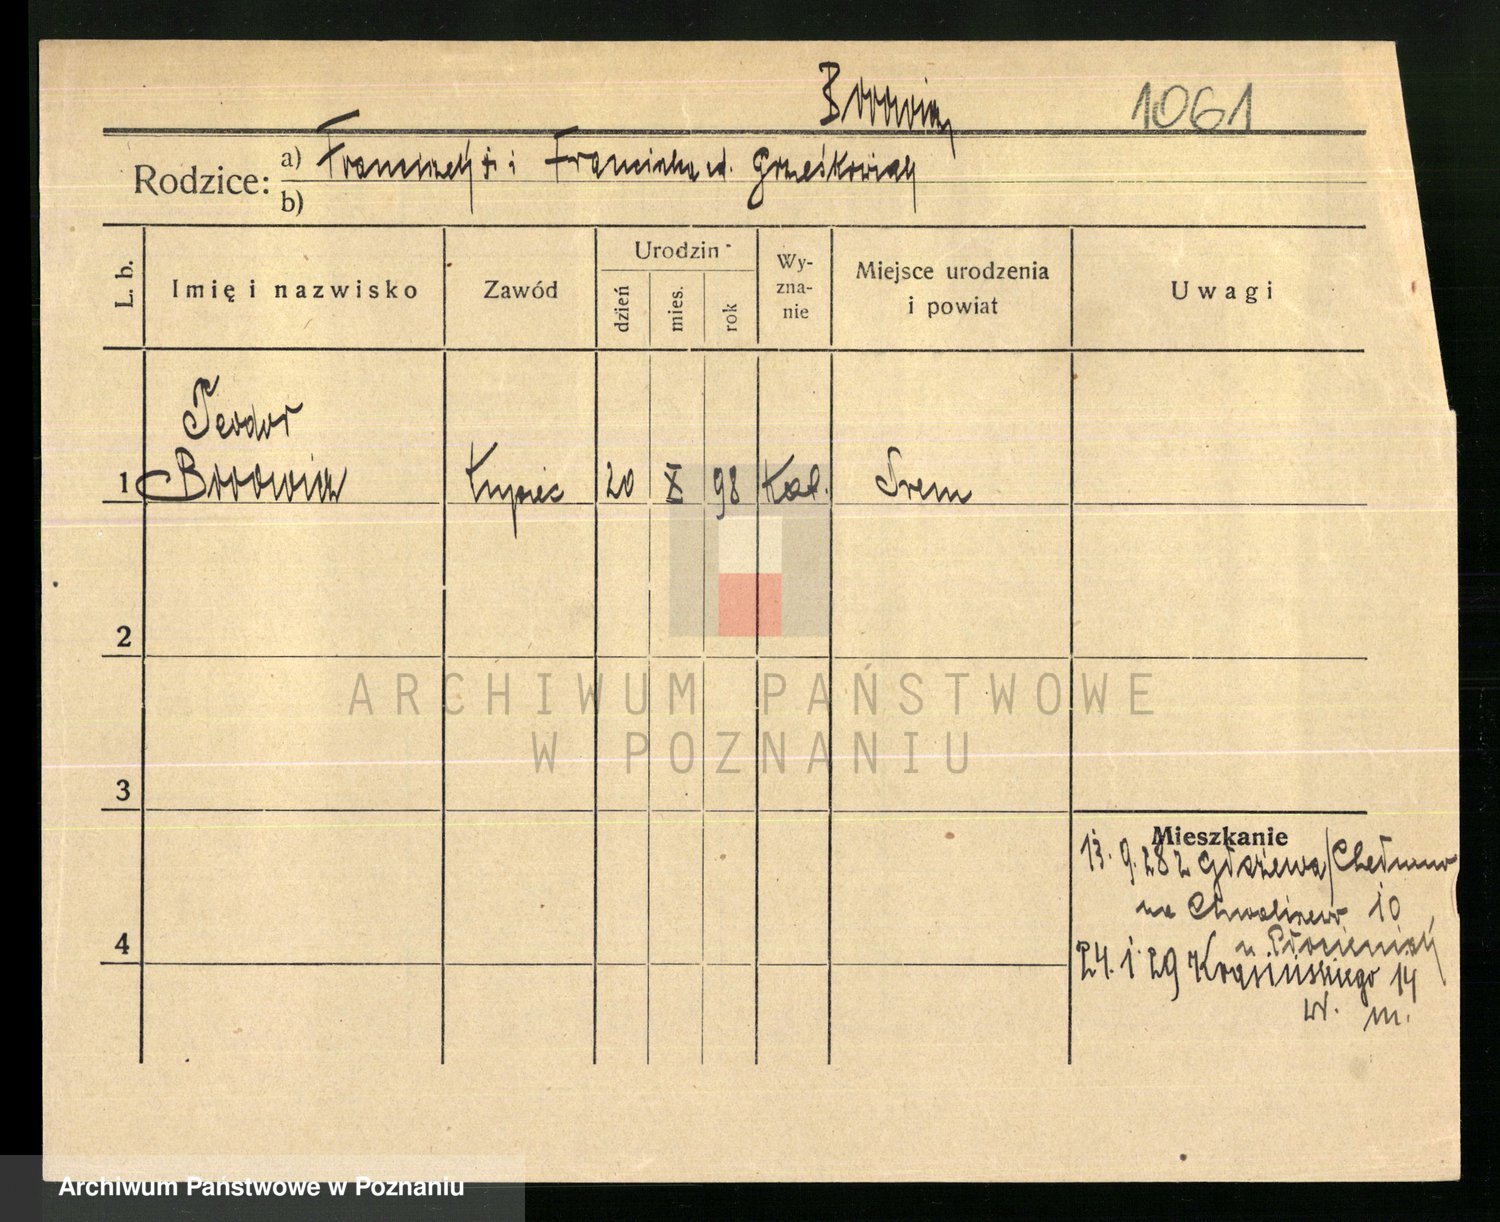 Borowicz
1061
Rodzice: a) Franciszek † i Franciszka zd. Grześkowiak
b)
L. b.
Imię i nazwisko
Zawód
Urodzin
dzień
mies.
rok
Wy-
zna-
nie
Miejsce urodzenia
i powiat
Uwagi
Teodor
1 Borowicz Kupiec 20 X 98 Kat. Śrem
2
ARCHIWUM PAŃSTWOWE
W POZNANIU
3
4
Mieszkanie
13. 9. 28 z
10
24. 1. 29 Krasińskiego 14
m.
Archiwum Państwowe w Poznaniu